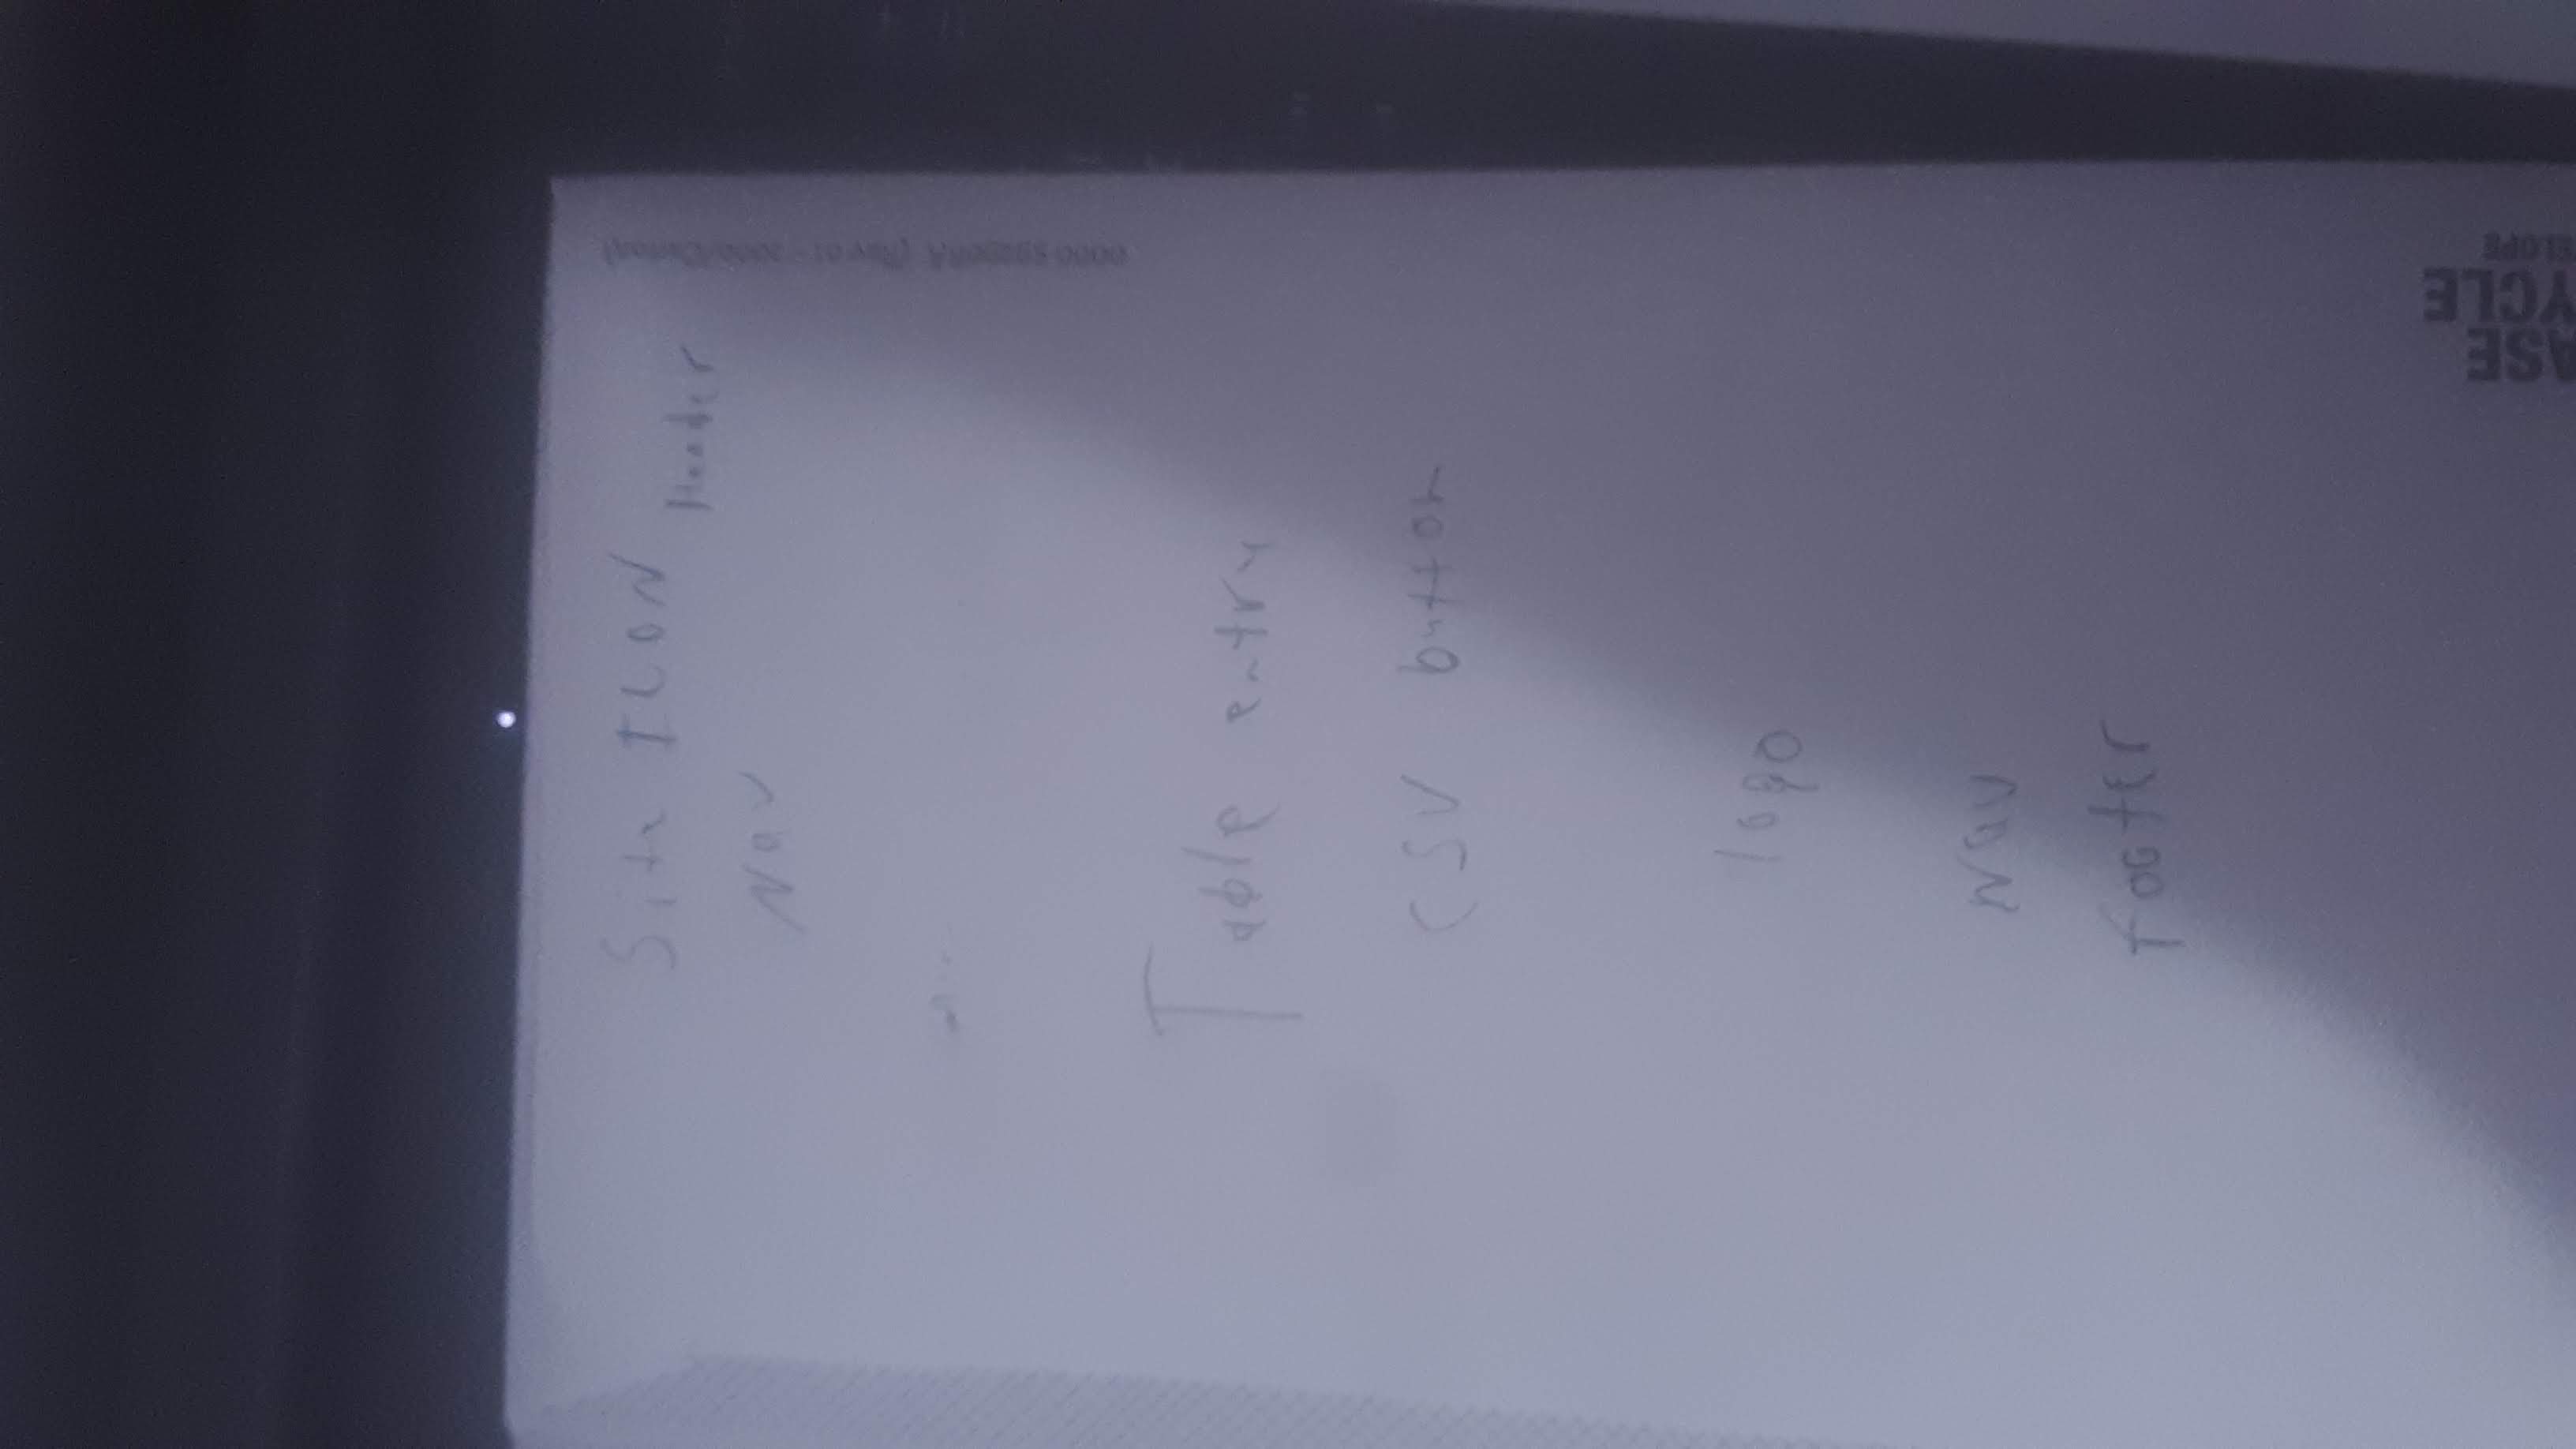 Site ICON
Header
Nav
Table entry
CSV button
logo
Nav
footer
ASE
YCLE
ELOPE